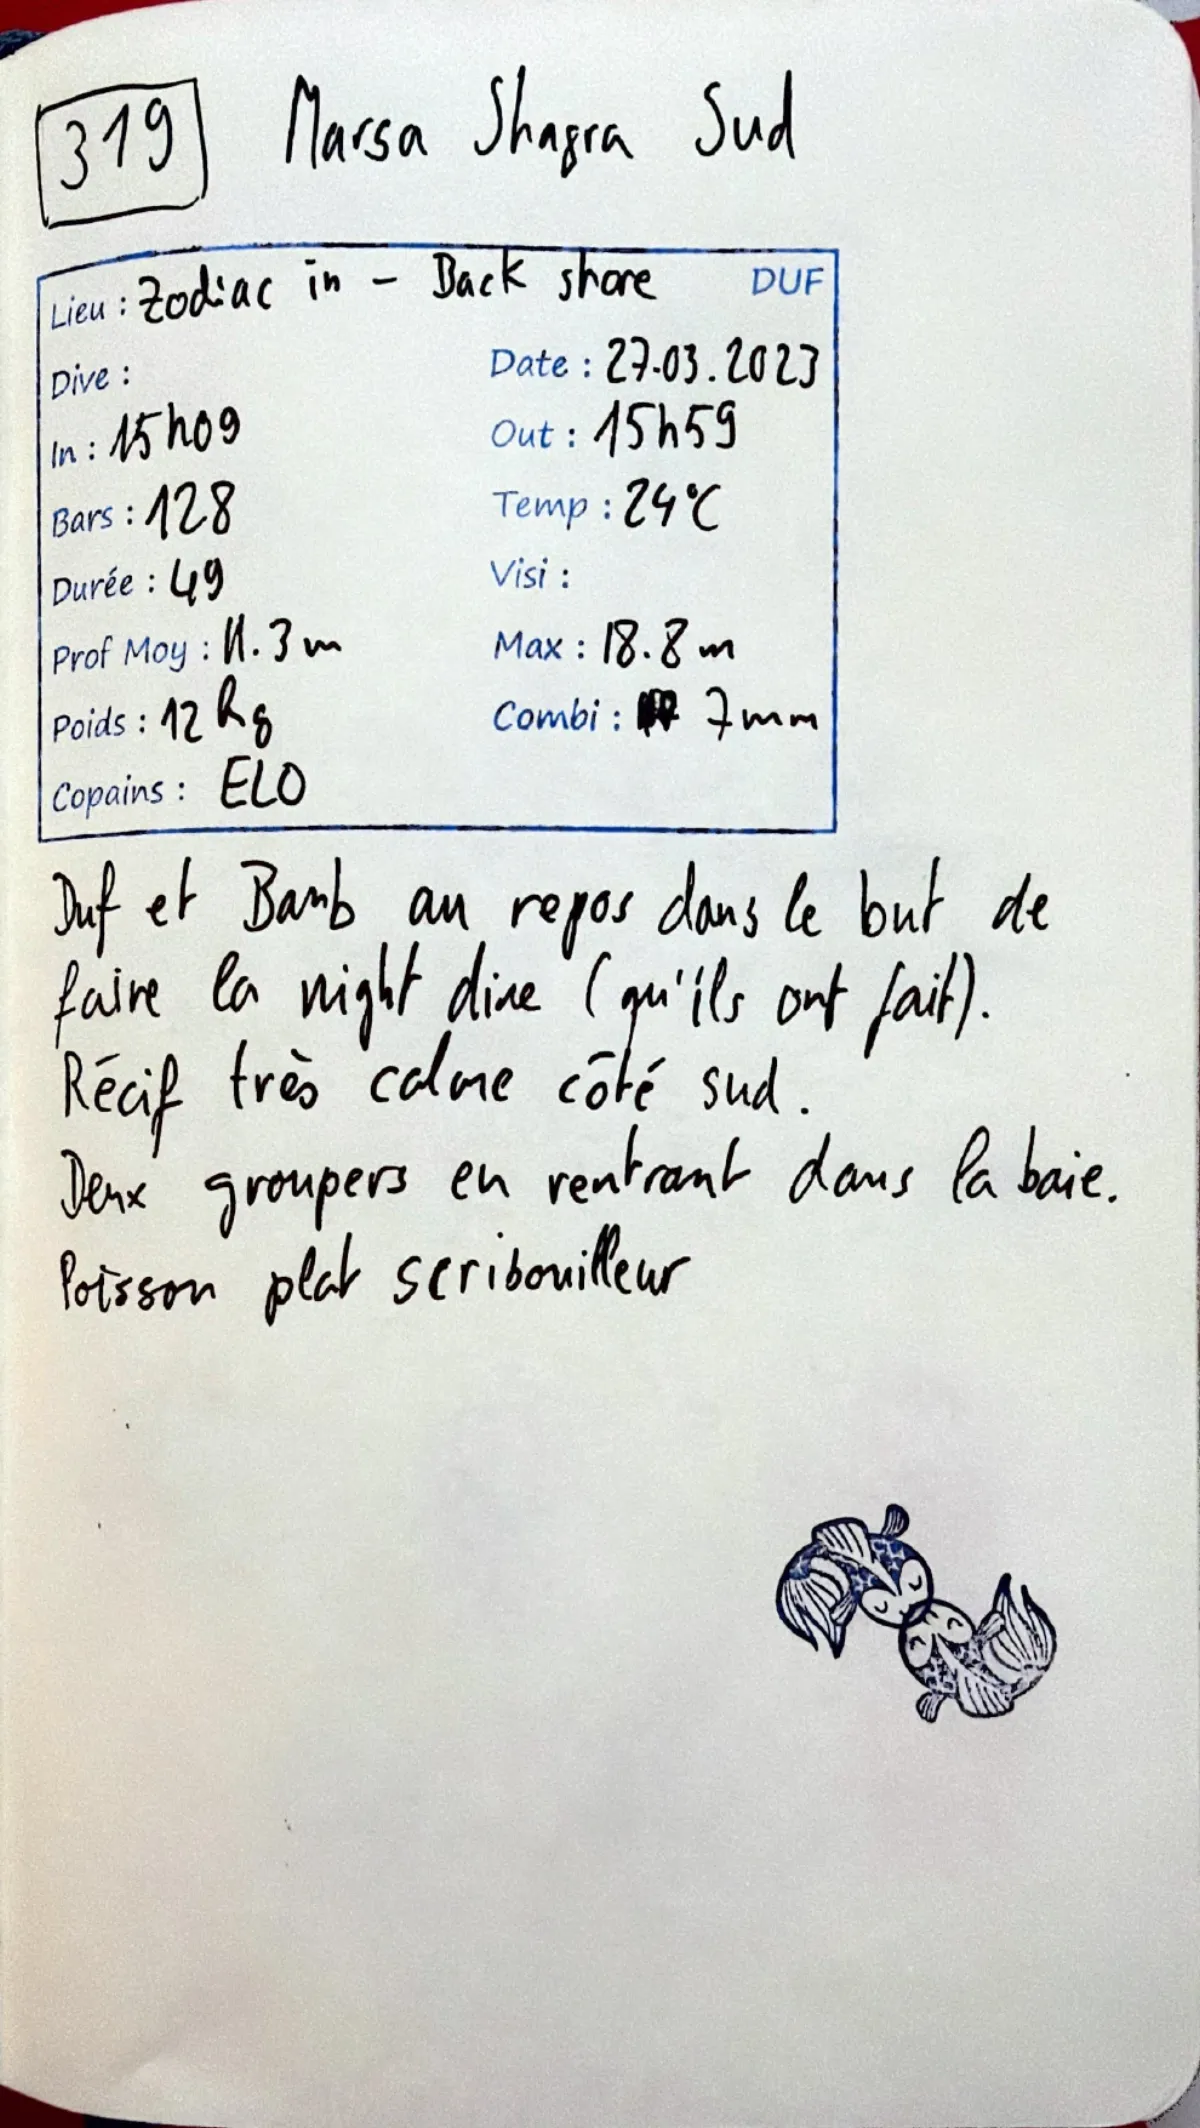 319 Marsa Shagra Sud
Lieu : Zodiac in - Back shore DUF
Dive : Date : 27.03.2023
In : 15h09 Out : 15h59
Bars : 128 Temp : 24°C
Durée : 49 Visi :
Prof Moy : 11.3 m Max : 18.8 m
Poids : 12 kg Combi : 7mm
Copains : ELO
Duf et Bamb au repos dans le but de
faire la night dive (qu'ils ont fait).
Récif très calme côté sud.
Deux groupers en rentrant dans la baie.
Poisson plat scribouilleur